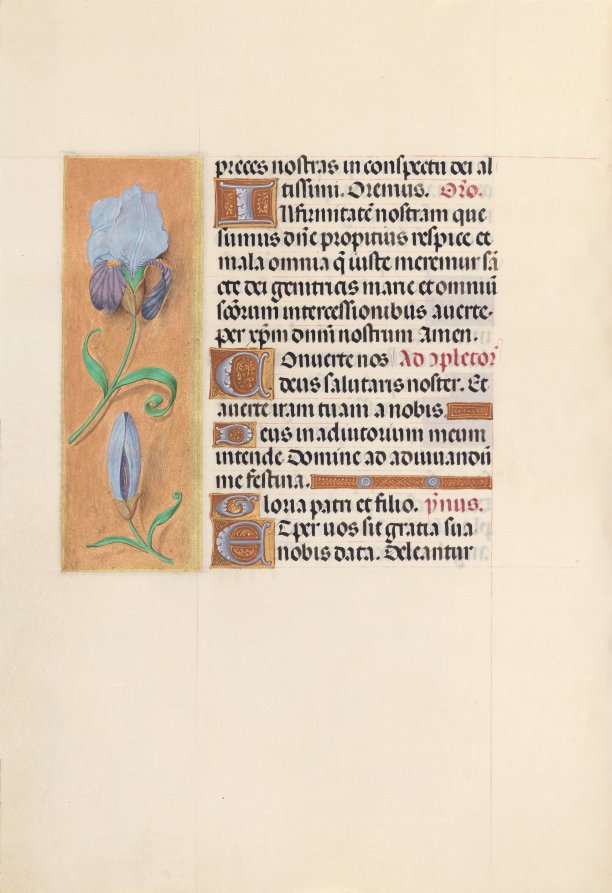 preces nostras in conspectu dei al
tissimi. Oremus. Oro͂.
INfirmitatē nostram que
sumus dn̄e propitius respice et
mala omnia q̄ iuste meremur sā
cte dei genitricis marie et omniū
sc̄orum intercessionibus auerte.
per xp̄m dn̄m nostrum Amen.
COnuerte nos Ad ↄpletor̄
deus salutaris noster. Et
auerte iram tuam a nobis.
Deus in adiutorium meum
intende Domine ad adiuuandū
me festina.
Gloria patri et filio. ym̄us.
ET per uos sit gratia sua
nobis data. Deleantur